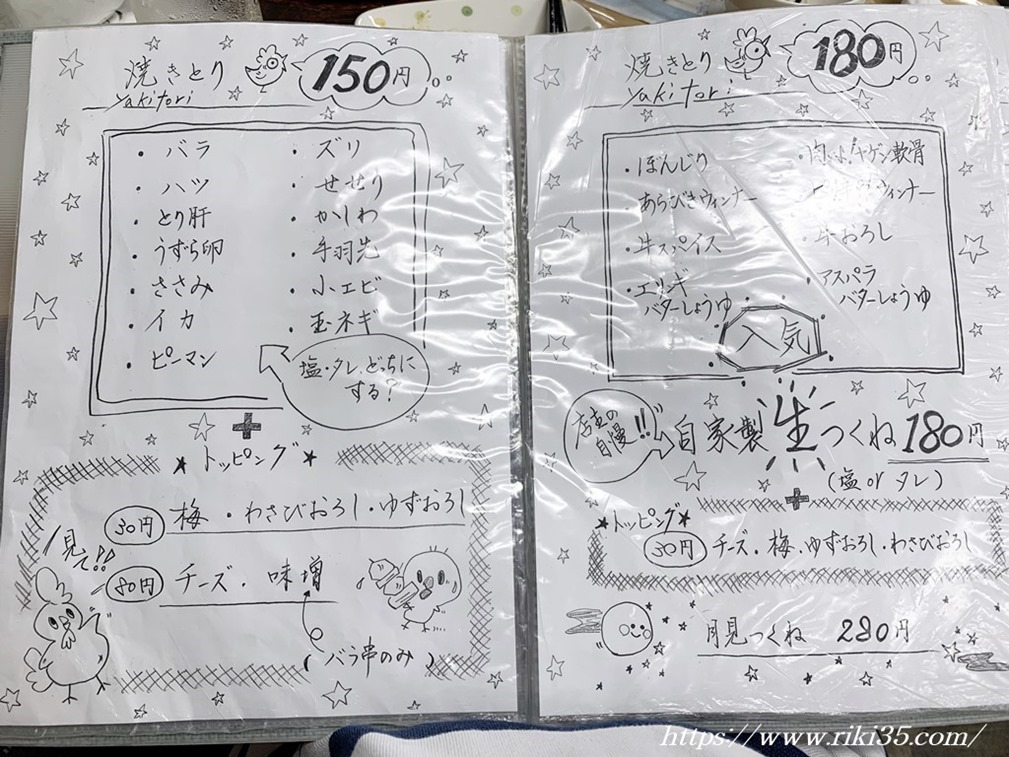 焼きとり 150円
Yakitori
・バラ
・ハツ
・とり肝
・うずら卵
・ささみ
・イカ
・ピーマン
・ズリ
・せせり
・かしわ
・手羽先
・小エビ
・玉ネギ
塩・タレ、どっちに
する?
+
★トッピング★
30円 梅・わさびおろし・ゆずおろし
80円 チーズ・味増
(バラ串のみ)
見て!!
焼きとり 180円
Yakitori
・ぼんじり
・あらびきウィンナー
・牛スパイス
・エリンギ
バターしょうゆ
ヤゲン軟骨
ウィンナー
・牛おろし
アスパラ
バターしょうゆ
人気
店主の
自慢!!
自家製生つくね 180円
(塩 or タレ)
+
★トッピング★
30円 チーズ・梅・ゆずおろし・わさびおろし
月見つくね 280円
https://www.riki35.com/